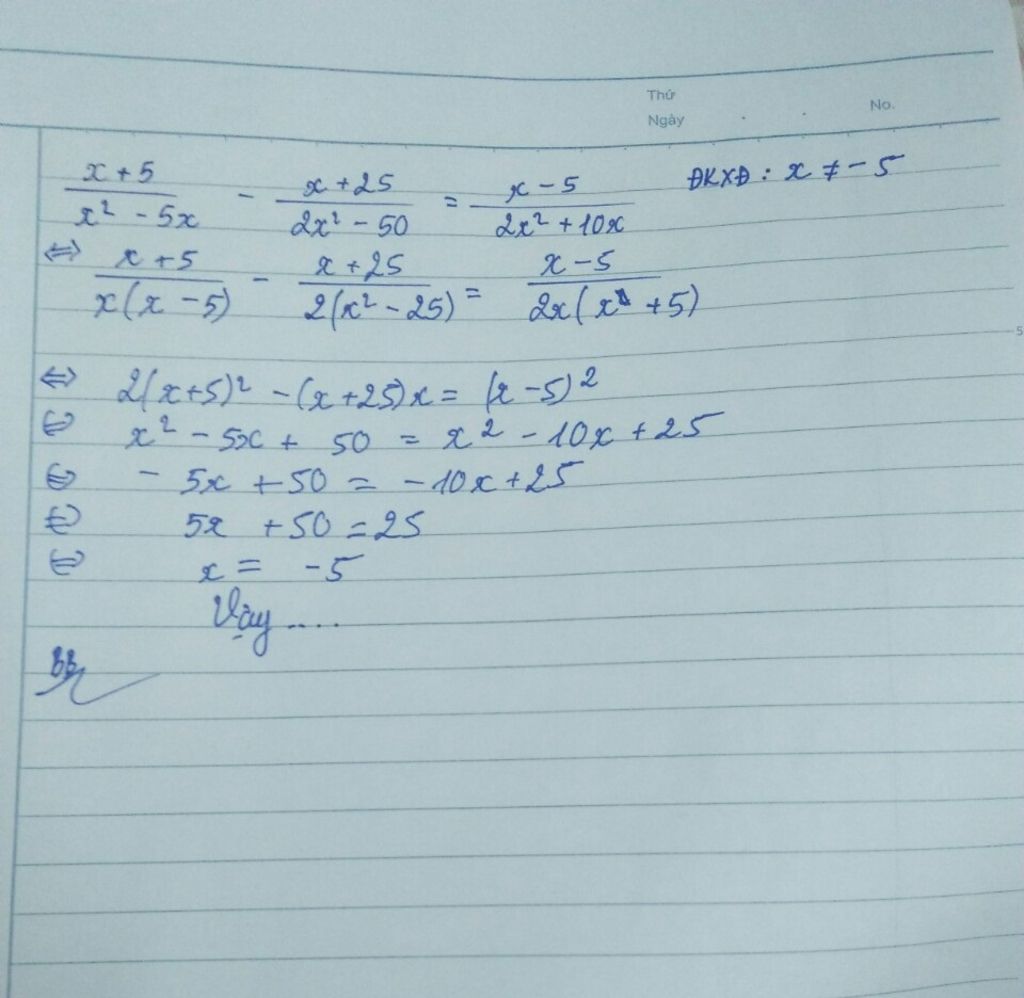 Thứ
Ngày No.
(x + 5)/(x² - 5x) - (x + 25)/(2x² - 50) = (x - 5)/(2x² + 10x) ĐKXĐ : x ≠ - 5
⇔ (x + 5)/(x(x - 5)) - (x + 25)/(2(x² - 25)) = (x - 5)/(2x(x + 5))
5
⇔ 2(x+5)² - (x+25)x = (x - 5)²
⇔ x² - 5x + 50 = x² - 10x + 25
⇔ - 5x + 50 = - 10x + 25
⇔ 5x + 50 = 25
⇔ x = - 5
Vậy ....